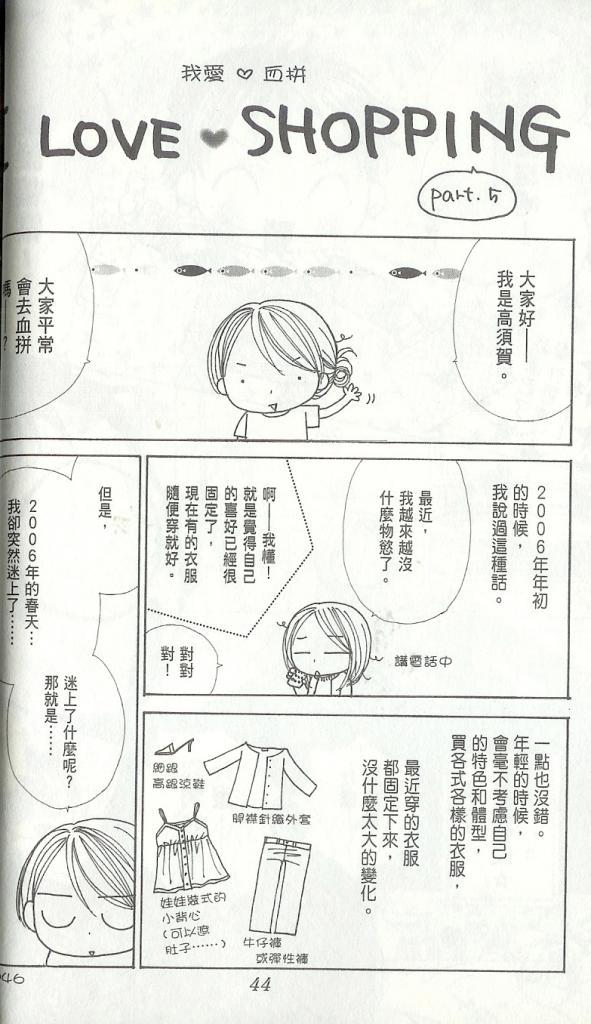 我愛♡血拼
LOVE ♥ SHOPPING
part.5
大家好——
我是高須賀。
大家平常
會去血拼
嗎——?
2006年年初
的時候，
我說過這種話。
最近，
我越來越沒
什麼物慾了。
講電話中
啊——我懂！
就是覺得自己
的喜好已經很
固定了，
現在有的衣服
隨便穿就好。
對對
對！
一點也沒錯。
年輕的時候，
會毫不考慮自己
的特色和體型，
買各式各樣的衣服，
最近穿的衣服
都固定下來，
沒什麼太大的變化。
細跟
高跟涼鞋
開襟針織外套
娃娃裝式的
小背心
(可以遮
肚子……)
牛仔褲
或彈性褲
但是，
2006年的春天…
我卻突然迷上了……
迷上了什麼呢?
那就是……
046
44